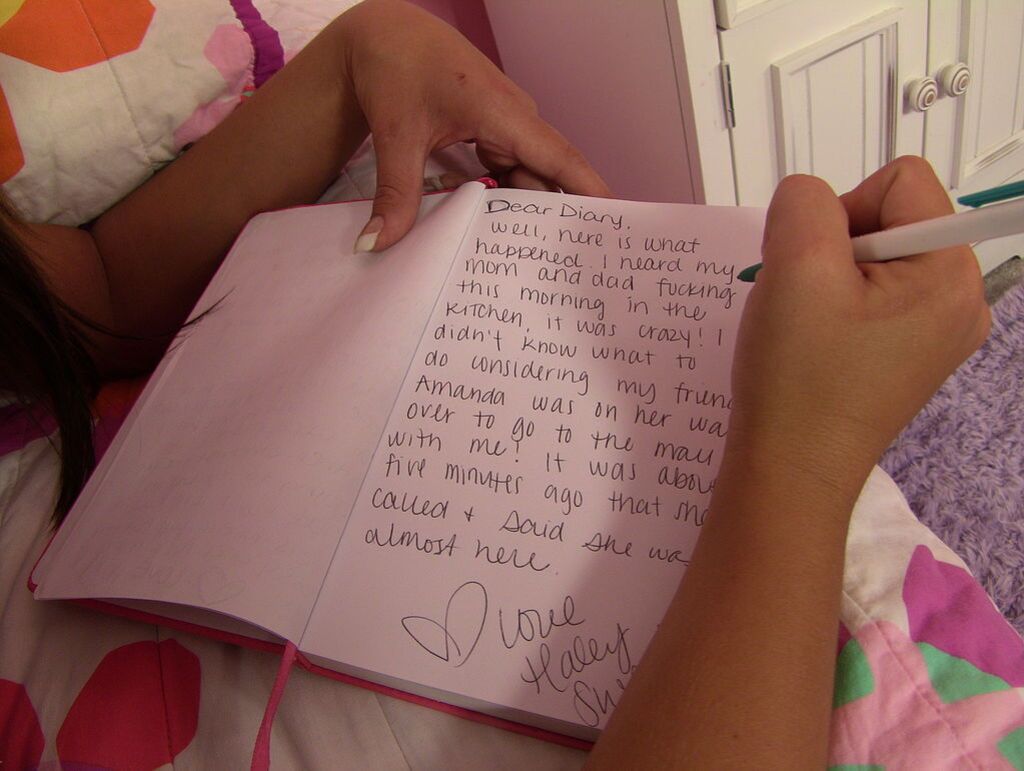 Dear Diary,
Well, here is what
happened. I heard my
mom and dad fucking
this morning in the
kitchen, it was crazy! I
didn't know what to
do considering my frien
Amanda was on her wa
over to go to the mall
with me! It was abou
five minutes ago that she
called + said she wa
almost here.
Love
Haley